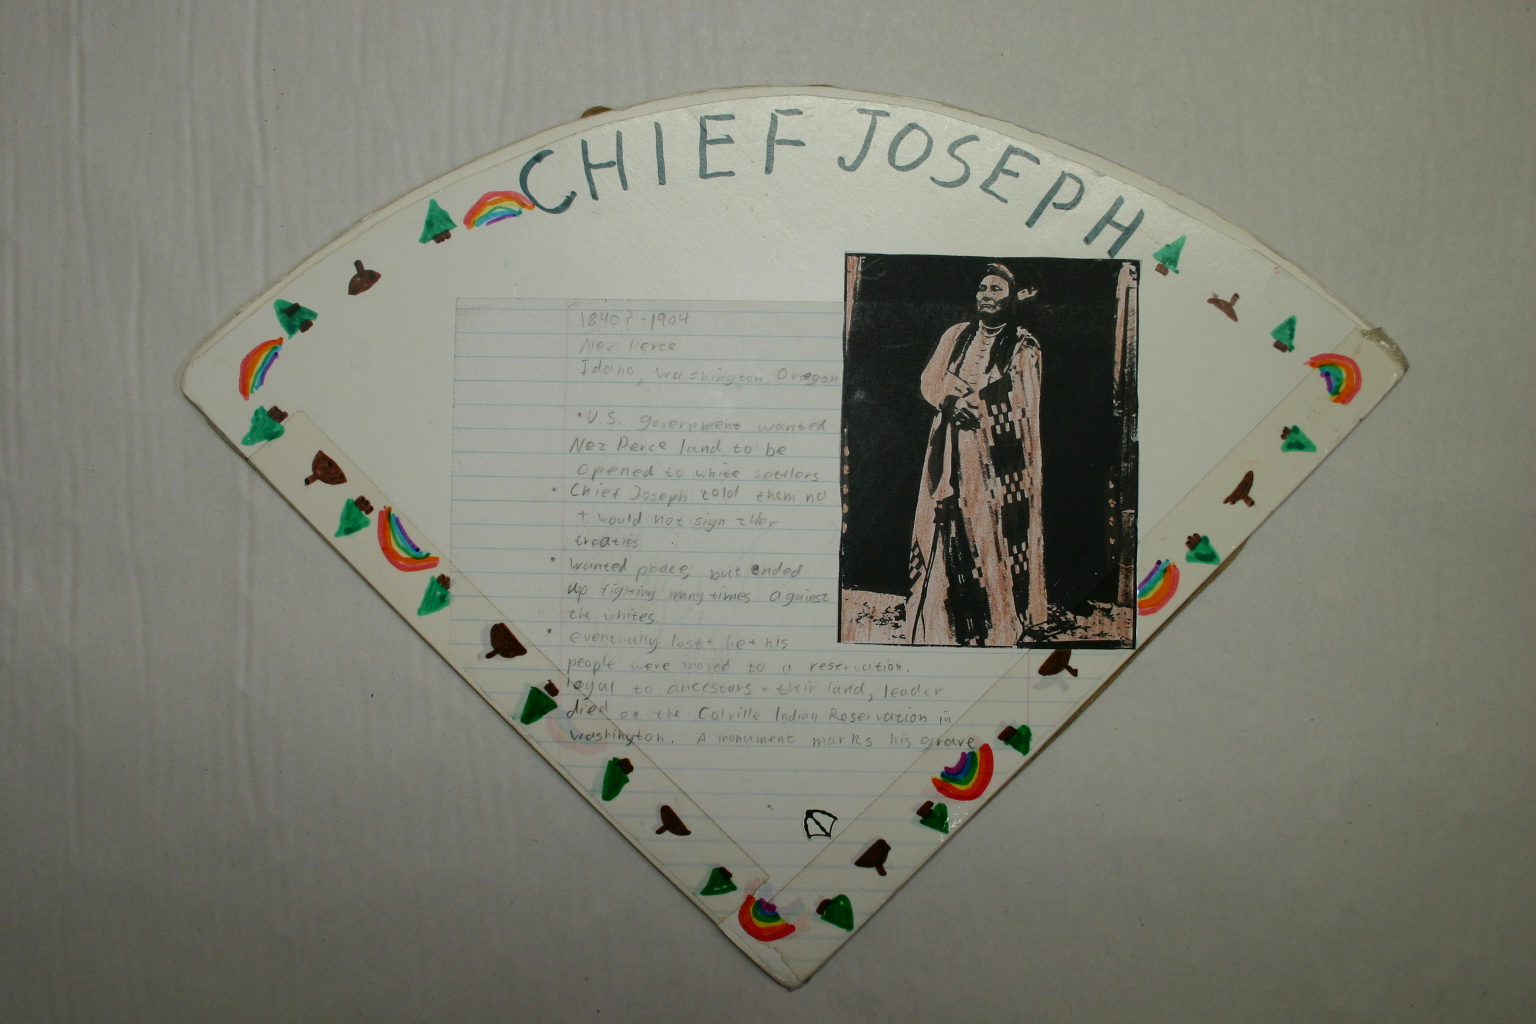 CHIEF JOSEPH
1840?-1904
Nez Perce
Idaho, Washington, Oregon
• U.S. government wanted
Nez Perce land to be
opened to white settlors
• Chief Joseph told them no
+ would not sign
treaties.
• wanted peace, but ended
up fighting many times against
the whites.
• eventually lost + he + his
people were moved to a reservation.
loyal to ancestors + their land, leader
died on the Colville Indian Reservation in
Washington. A monument marks his grave